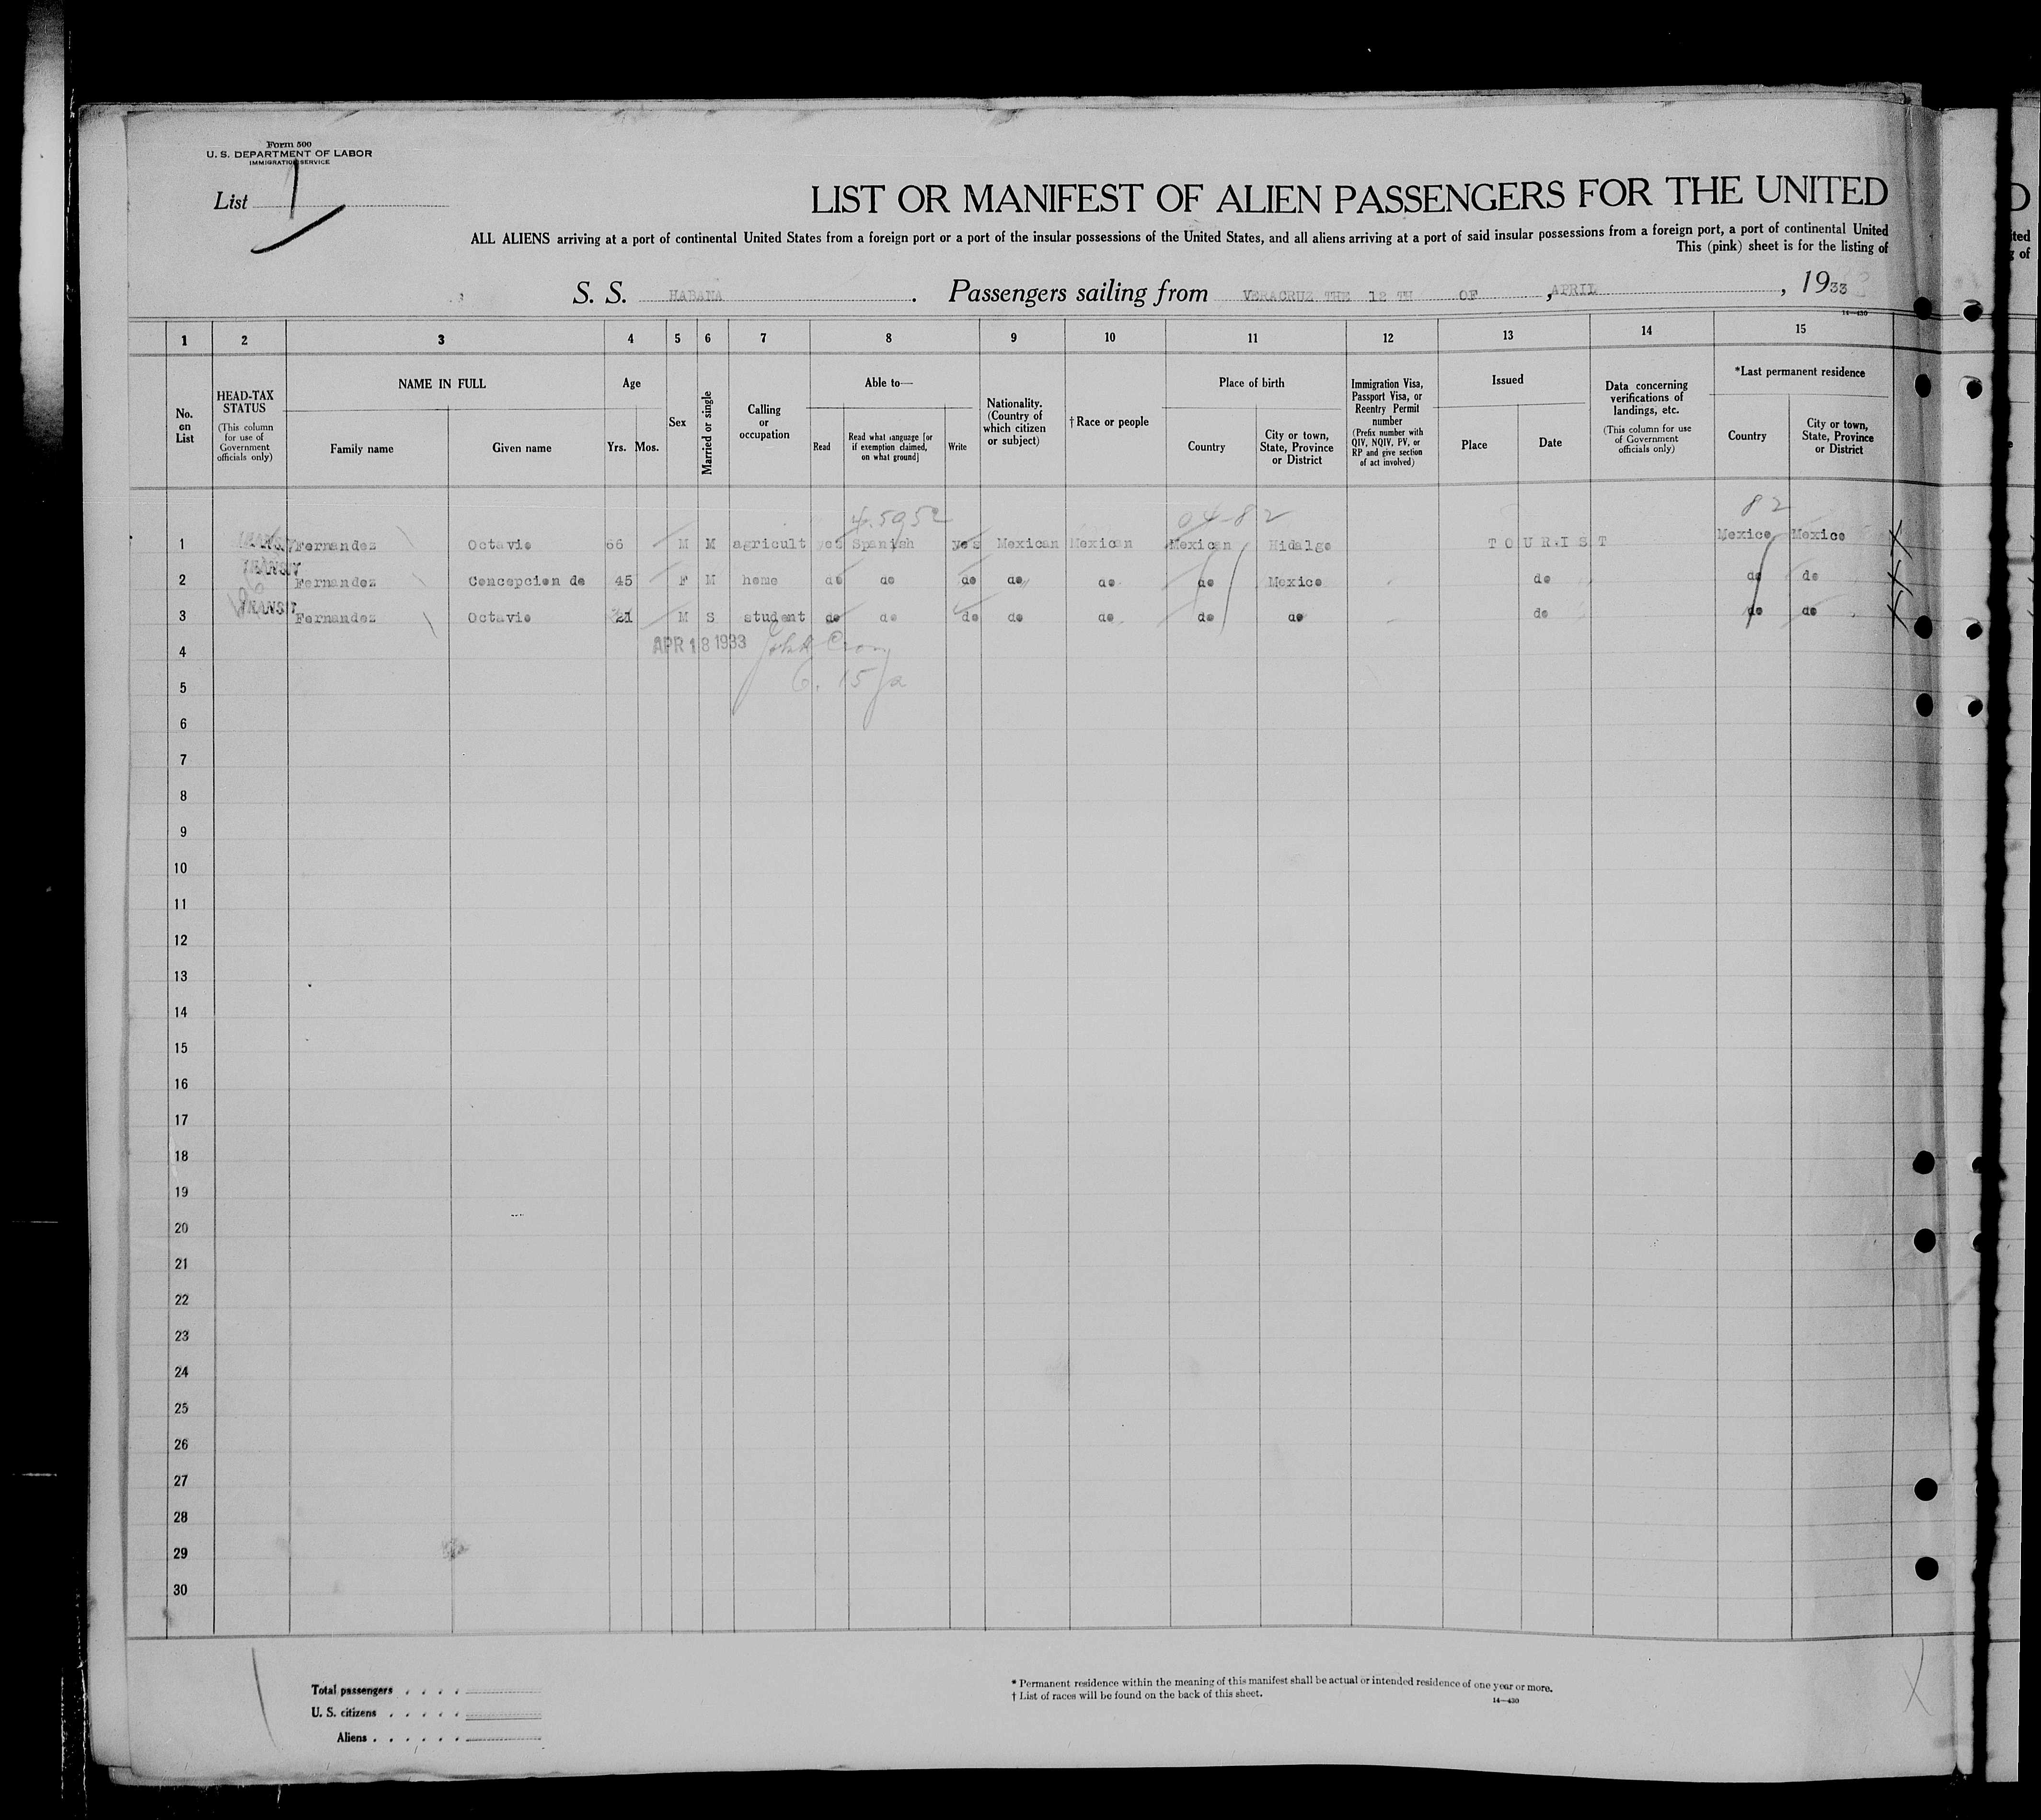 Form 500
U. S. DEPARTMENT OF LABOR
IMMIGRATION SERVICE
List 1
LIST OR MANIFEST OF ALIEN PASSENGERS FOR THE UNITED
ALL ALIENS arriving at a port of continental United States from a foreign port or a port of the insular possessions of the United States, and all aliens arriving at a port of said insular possessions from a foreign port, a port of continental United
This (pink) sheet is for the listing of
S. S. HABANA . Passengers sailing from VERACRUZ THE 12 TH OF , APRIL , 1933
14—430
1 2 3 4 5 6 7 8 9 10 11 12 13 14 15
No. on List
HEAD-TAX STATUS
(This column for use of Government officials only)
NAME IN FULL
Family name
Given name
Age
Yrs. Mos.
Sex
Married or single
Calling or occupation
Able to—
Read
Read what language [or if exemption claimed, on what ground]
Write
Nationality. (Country of which citizen or subject)
†Race or people
Place of birth
Country
City or town, State, Province or District
Immigration Visa, Passport Visa, or Reentry Permit number
(Prefix number with QIV, NQIV, PV, or RP and give section of act involved)
Issued
Place
Date
Data concerning verifications of landings, etc.
(This column for use of Government officials only)
*Last permanent residence
Country
City or town, State, Province or District
4.5952 04-82 82
1 Fernandez Octavio 66 M M agricult yes Spanish yes Mexican Mexican Mexican Hidalgo TOURIST Mexico Mexico
2 TRANSIT Fernandez Concepcion de 45 F M home do do do do do do Mexico do do do
3 TRANSIT Fernandez Octavio 21 M S student do do do do do do do do do do
4 APR 18 1933
5
6
7
8
9
10
11
12
13
14
15
16
17
18
19
20
21
22
23
24
25
26
27
28
29
30
Total passengers . . . .
U. S. citizens . . . . .
Aliens . . . . . .
* Permanent residence within the meaning of this manifest shall be actual or intended residence of one year or more.
† List of races will be found on the back of this sheet.
14—430